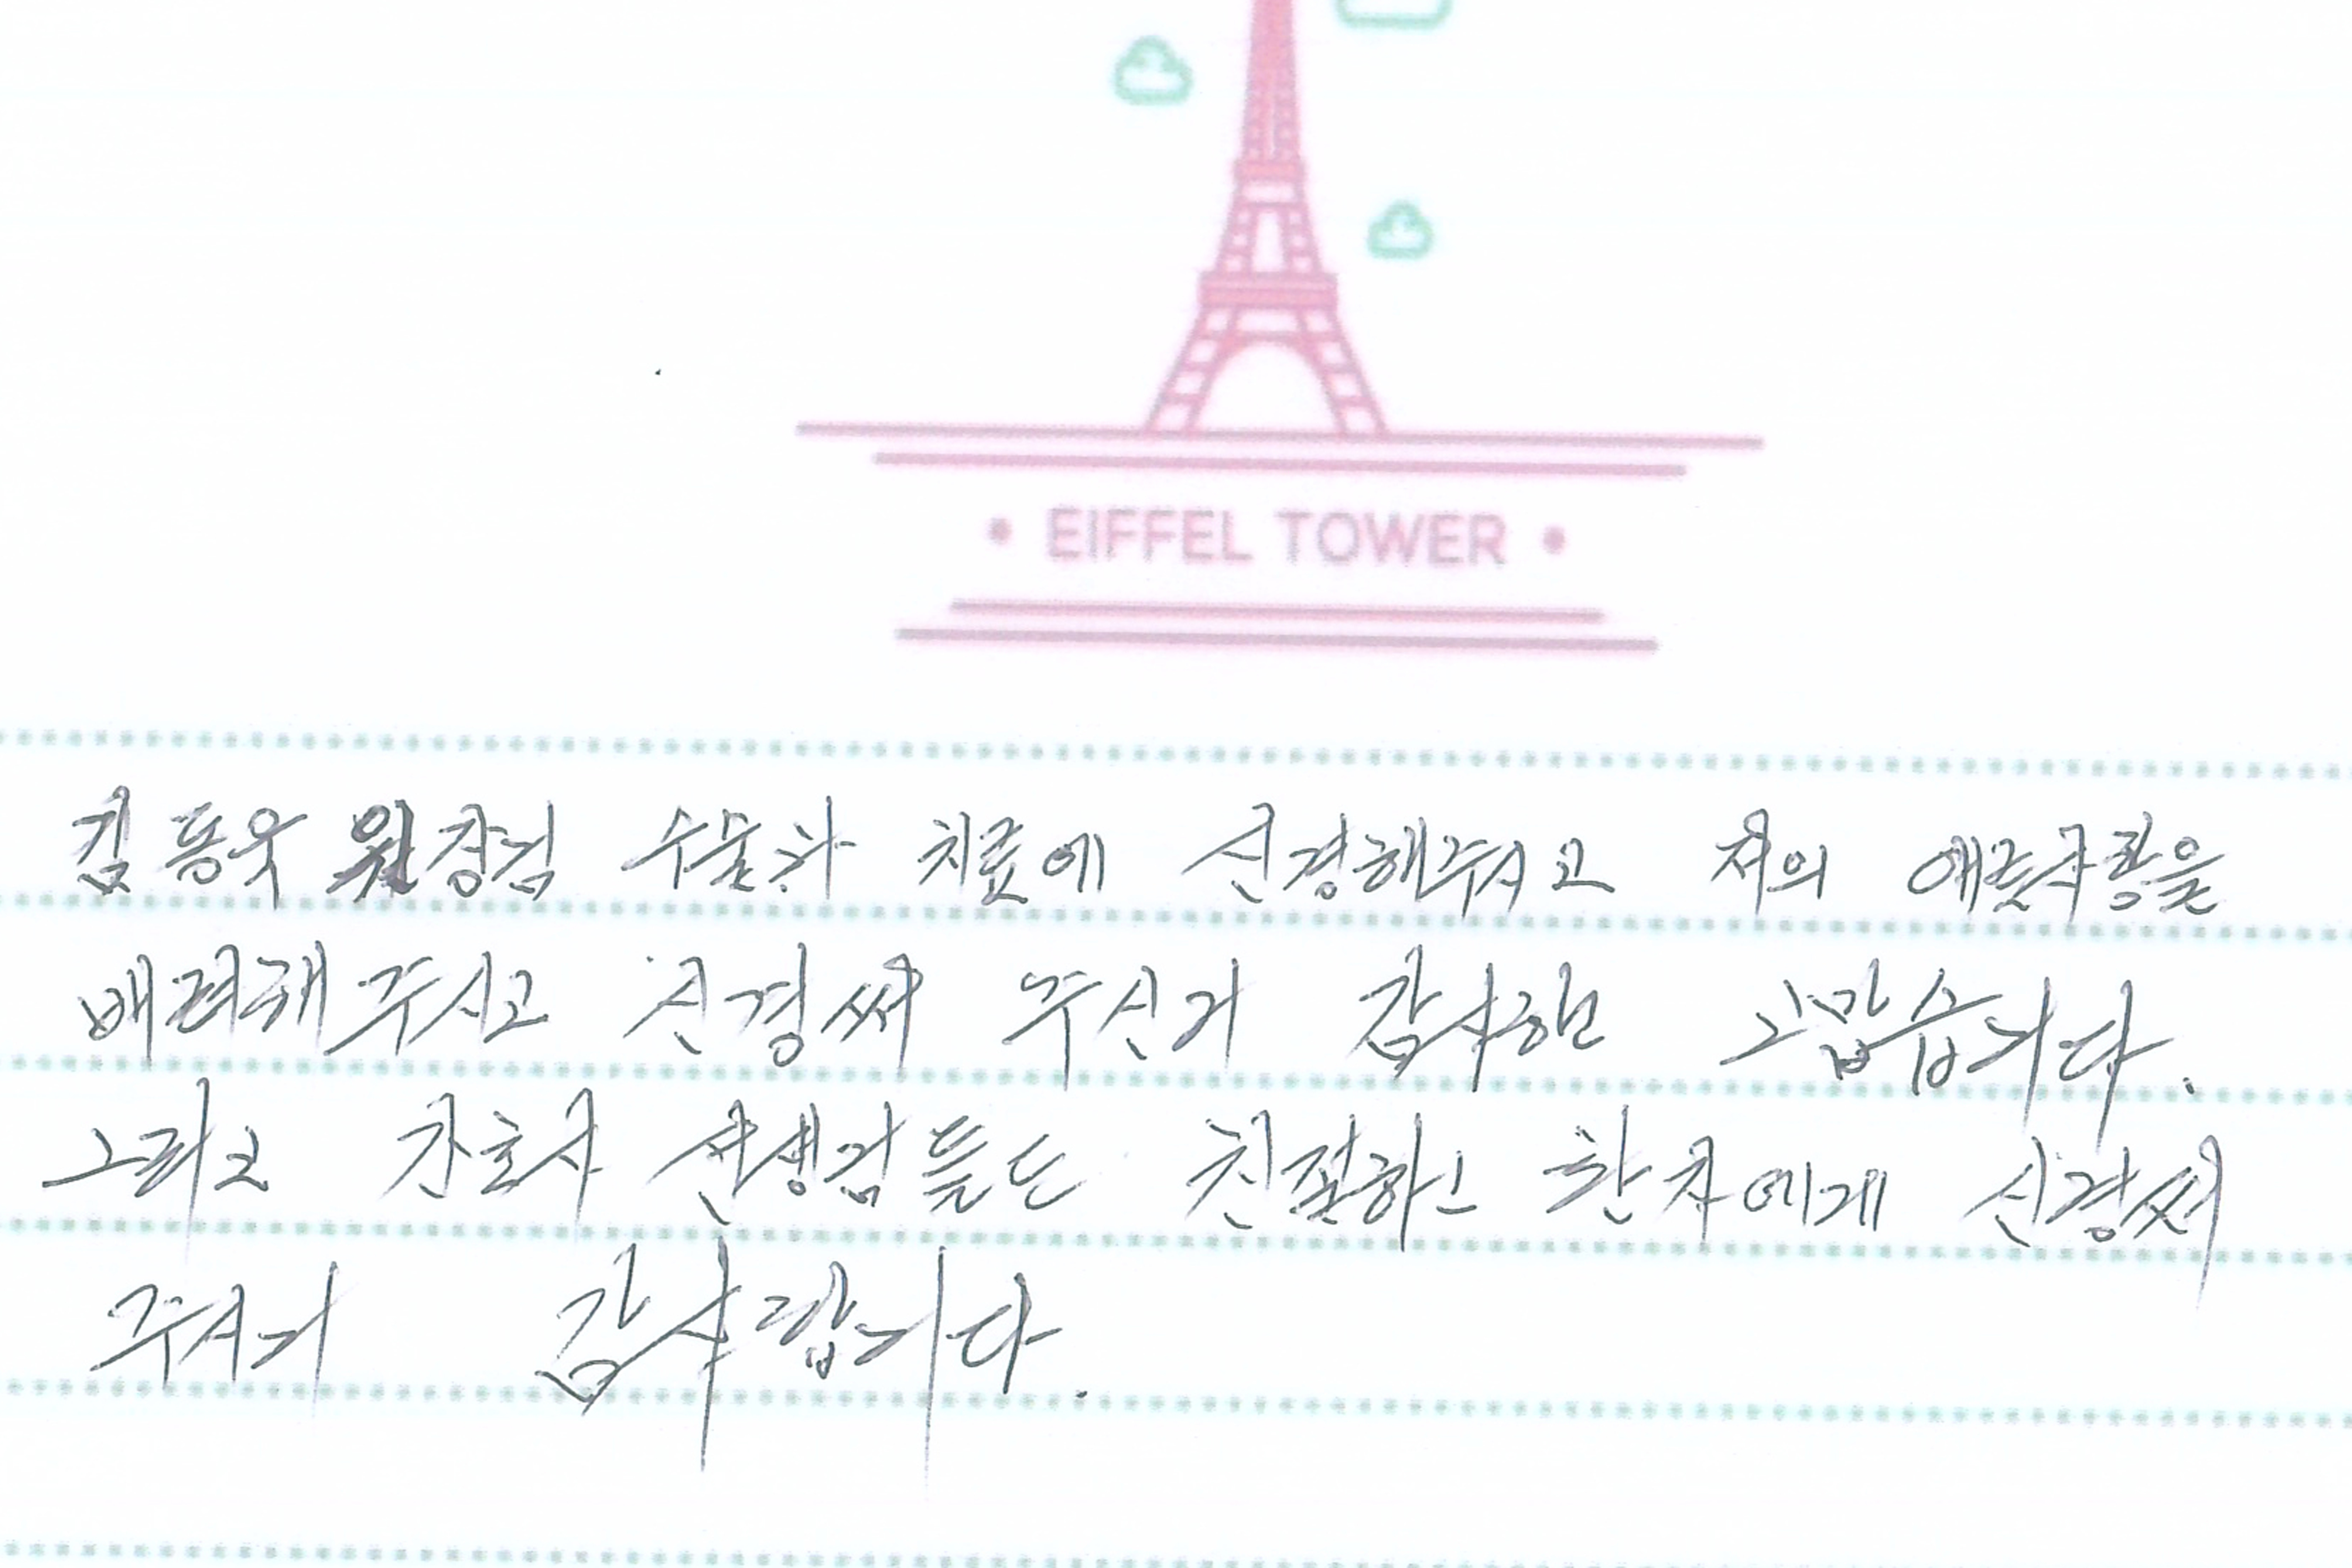 • EIFFEL TOWER •
김동욱 원장님 수술과 치료에 신경해주시고 저의 애로사항을
배려해 주시고 신경써 주신거 감사한 고맙습니다.
그리고 간호사 선생님들도 친절하고 환자에게 신경써
주시거 감사합니다.